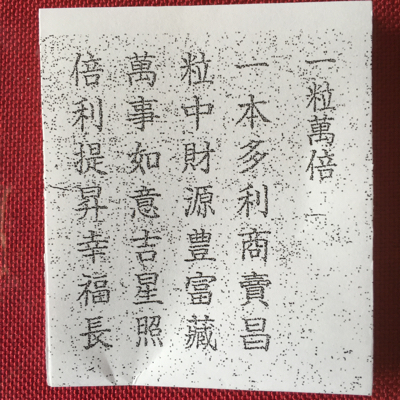 一粒萬倍
一本多利商賣昌
粒中財源豐富藏
萬事如意吉星照
倍利提昇幸福長